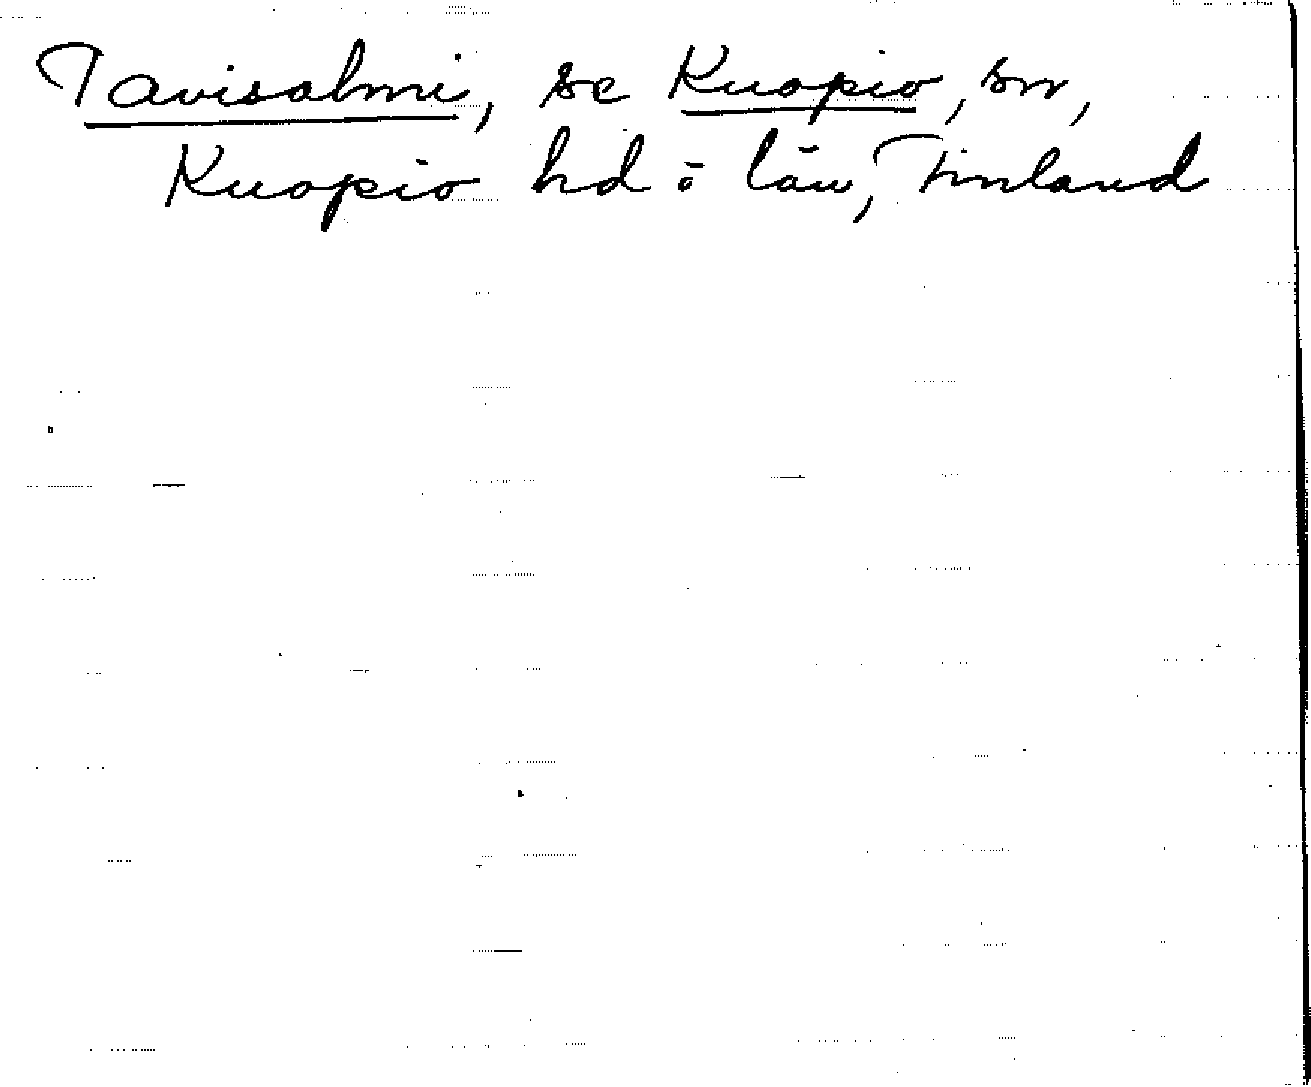 Tavisalmi, se Kuopio, sn,
Kuopio hd o län, Finland